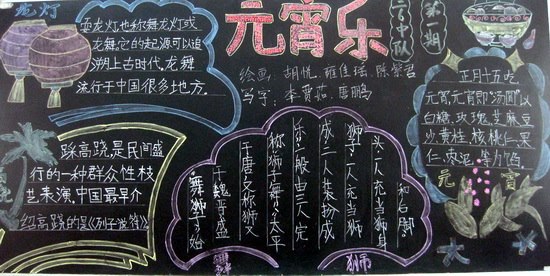 龙灯
耍龙灯也称舞龙灯或
龙舞,它的起源可以追
溯上古时代,龙舞
流行于中国很多地方.
元宵乐
六中队
第一期
绘画:胡悦、雍佳瑶、陈紫君
写字:李贾茹、唐鹏
踩高跷,是民间盛
行的一种群众性技
艺表演,中国最早介
绍高跷的是《列子·说符》
舞狮子始
于魏晋盛
于唐,又称狮火
称“狮子舞”、“太平
乐”一般由三人完
成,二人装扮成
狮子,一人充当狮
头,一人充当狮身
和后脚
舞狮
正月十五吃
元宵,元宵即“汤圆”以
白糖、玫瑰、芝麻、豆
沙、黄桂、核桃仁、果
仁、枣泥、等为馅
元宵